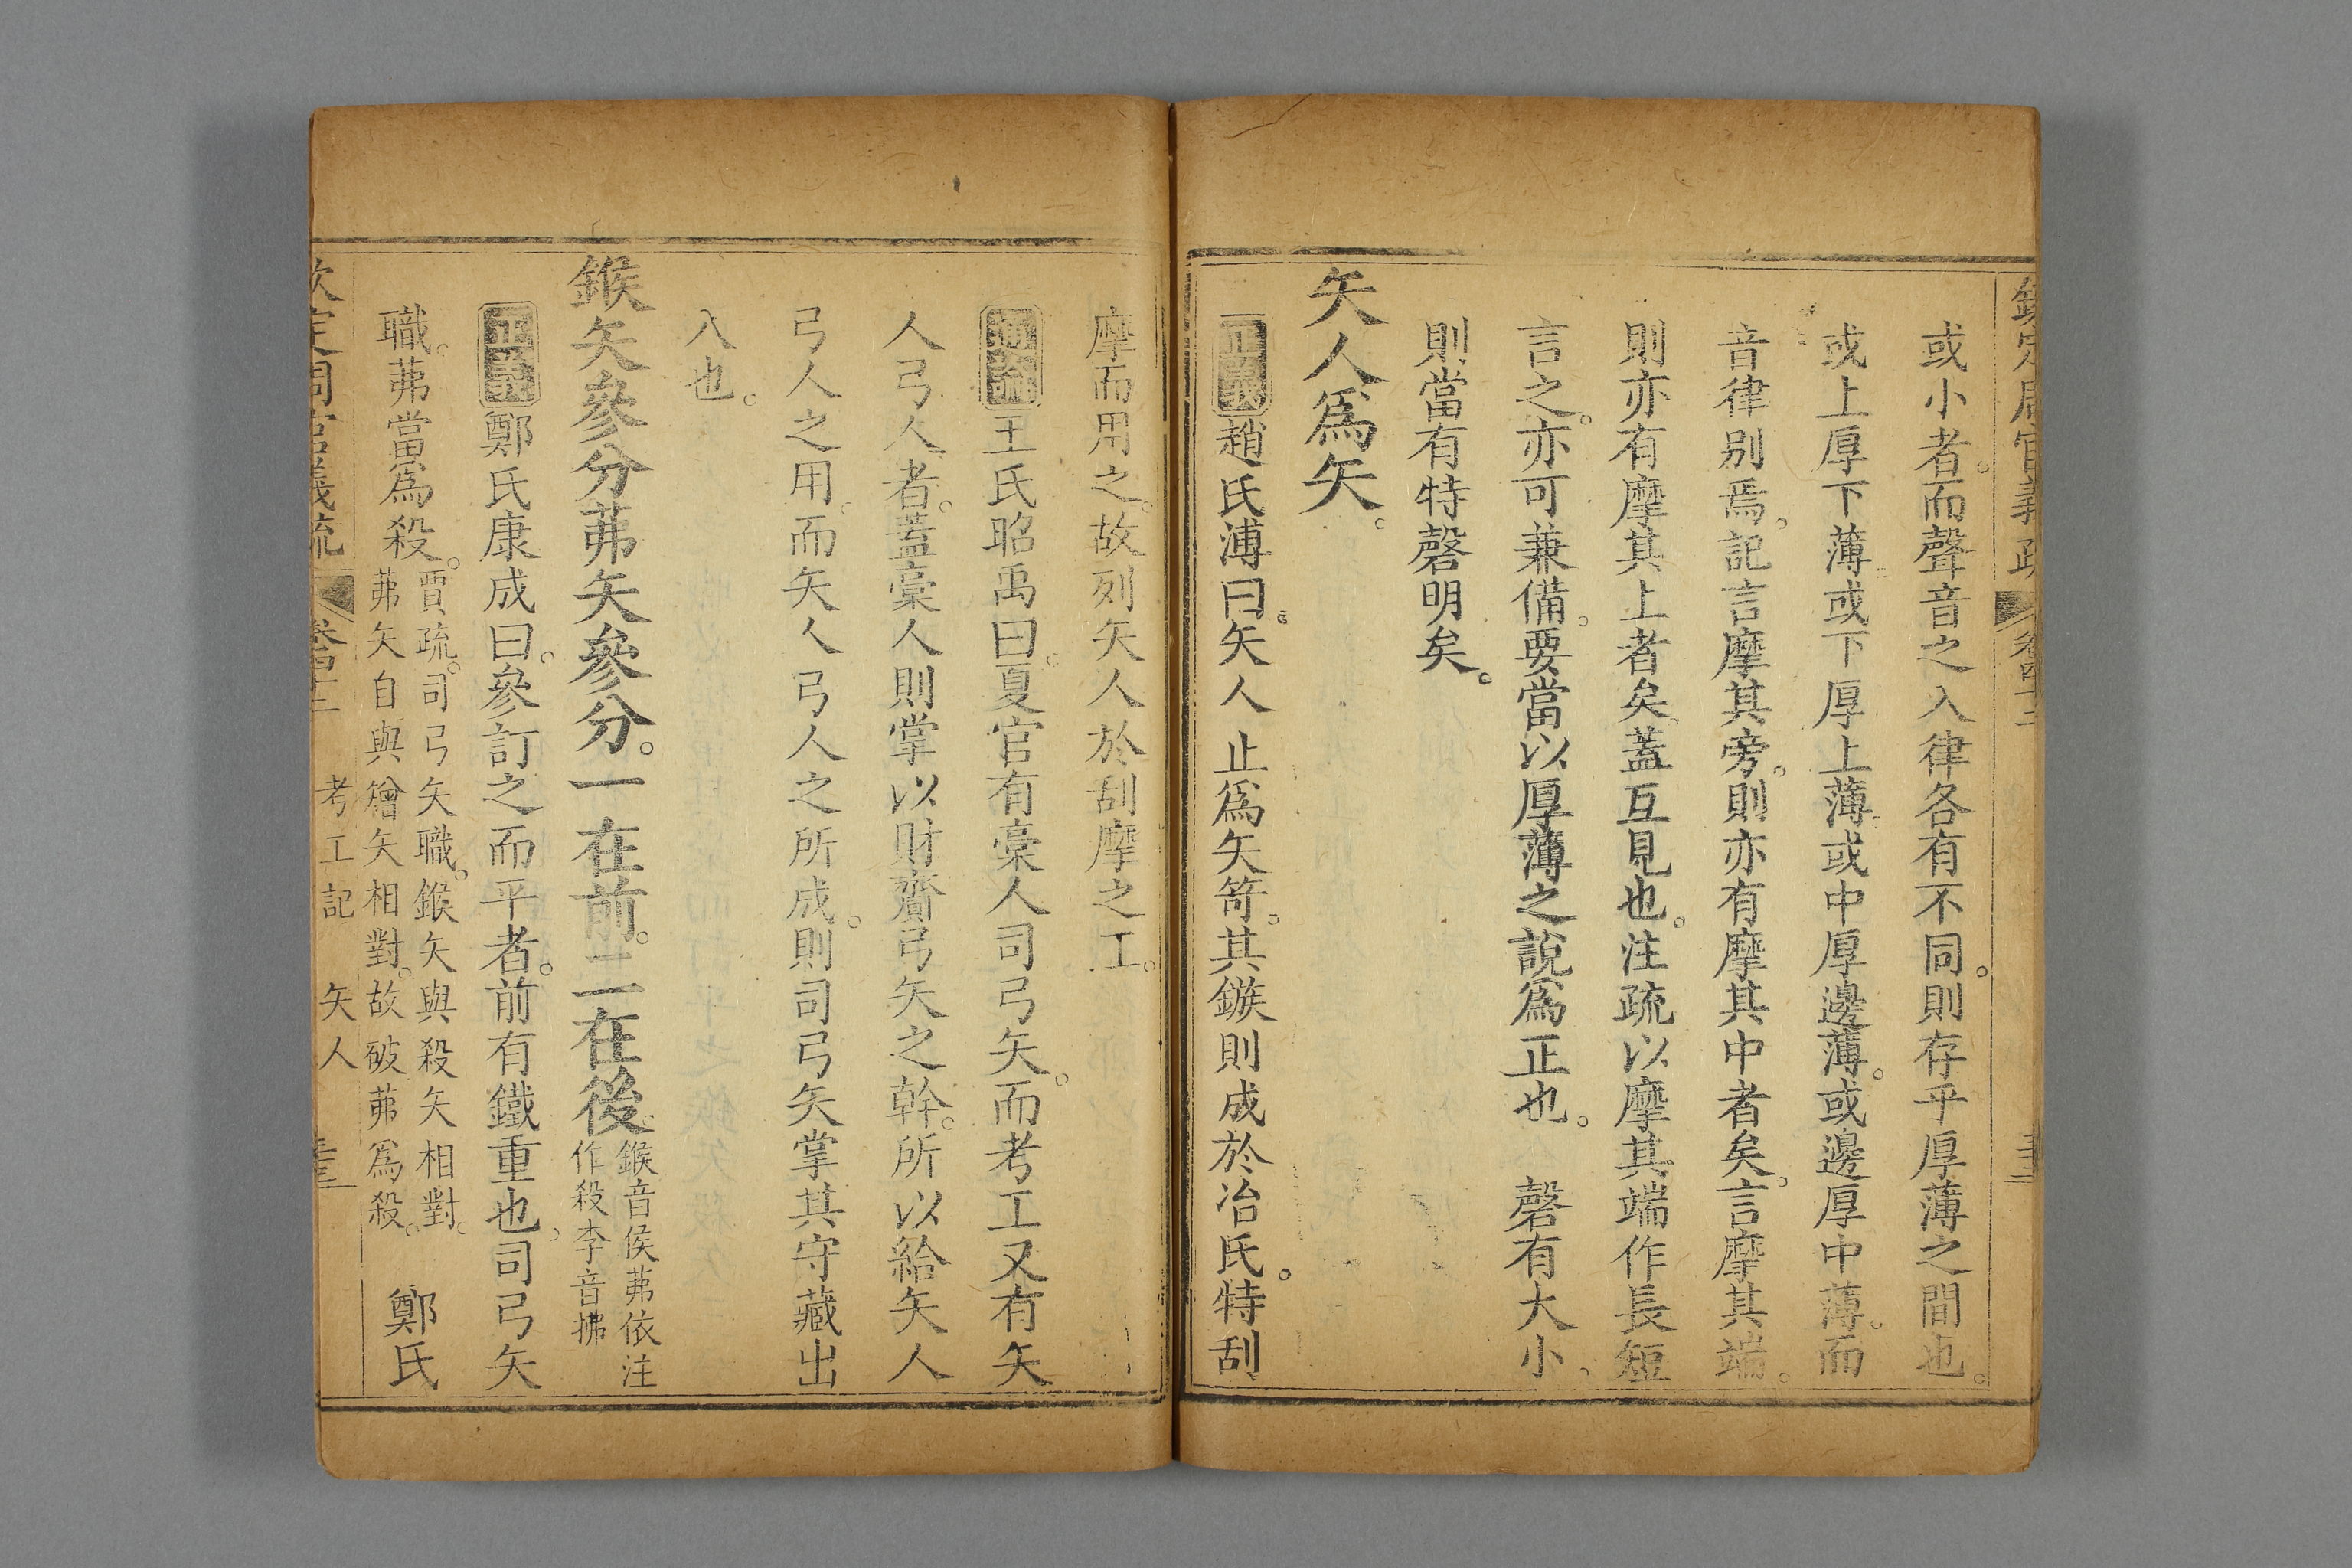 欽定周官義疏 卷四十二
或小者。而聲音之入律各有不同。則存乎厚薄之間也。
或上厚下薄。或下厚上薄。或中厚邊薄。或邊厚中薄。而
音律别焉。記言摩其旁。則亦有摩其中者矣。言摩其端。
則亦有摩其上者矣。蓋互見也。注疏以摩其端作長短
言之。亦可兼備。要當以厚薄之說為正也。 磬有大小。
則當有特磬明矣。
矢人為矢。
正義 趙氏溥曰。矢人止為矢笴。其鏃則成於冶氏。特刮
摩而用之。故列矢人於刮摩之工。
通論 王氏昭禹曰。夏官有槀人司弓矢。而考工又有矢
人弓人者。蓋槀人則掌以財齎弓矢之幹。所以給矢人
弓人之用。而矢人弓人之所成。則司弓矢掌其守藏出
入也。
鍭矢參分茀矢參分。一在前。二在後。
鍭音侯茀依注
作殺李音拂
正義 鄭氏康成曰。參訂之而平者。前有鐵重也。司弓矢
職。茀當為殺。
賈疏。司弓矢職。鍭矢與殺矢相對。
茀矢自與矰矢相對。故破茀為殺。
鄭氏
欽定周官義疏 卷四十二 考工記 矢人